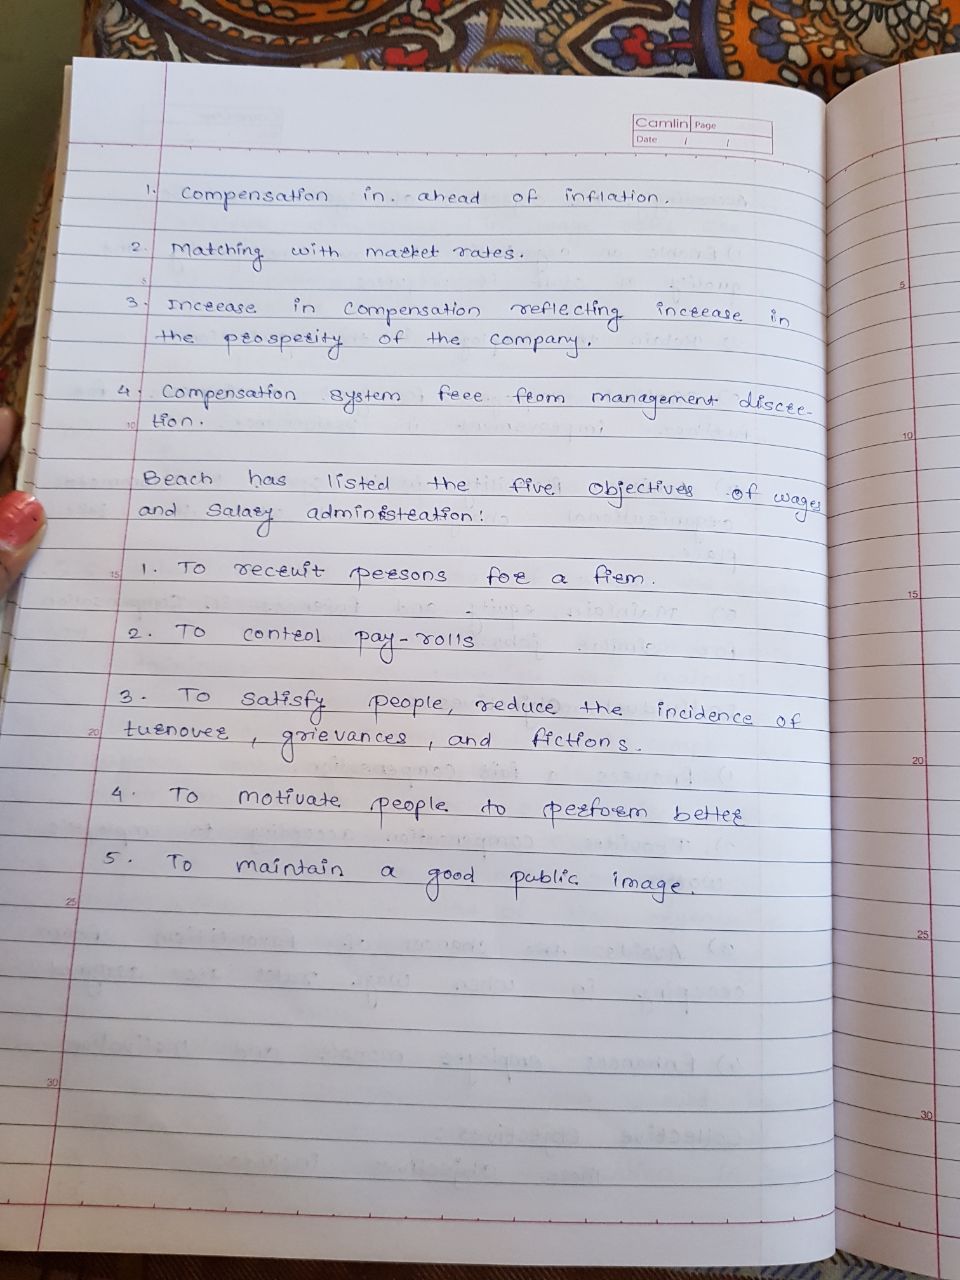 Camlin Page
Date / /
1. Compensation in. ahead of inflation.
2. Matching with market rates.
3. Increase in compensation reflecting increase in
the prosperity of the company.
4. Compensation system free from management discre-
tion.
Beach has listed the five objectives of wages
and salary administration:-
1. To recruit persons for a firm.
2. To control pay-rolls
3. To satisfy people, reduce the incidence of
turnover, grievances, and fictions.
4. To motivate people to perform better
5. To maintain a good public image.
5
10
15
20
25
30
5
10
15
20
25
30